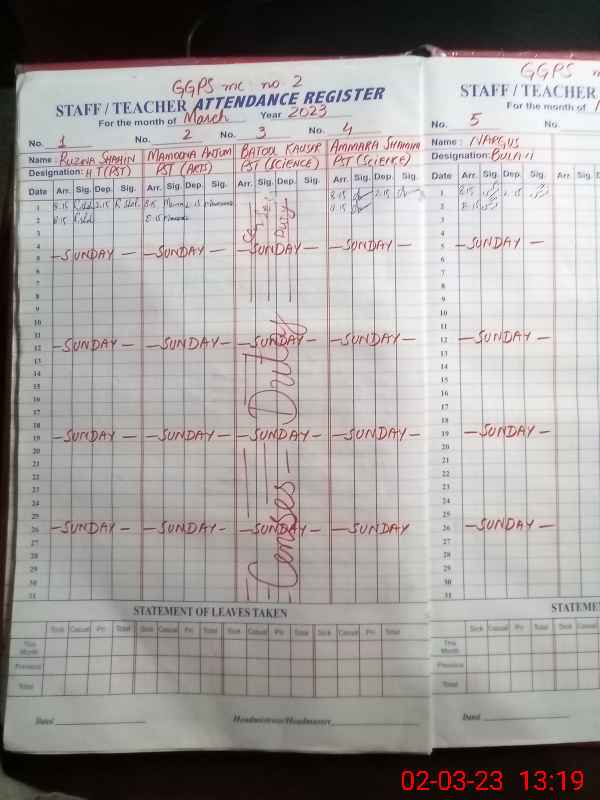 GGPS mc no. 2
STAFF / TEACHER ATTENDANCE REGISTER
For the month of March Year 2023
No. 1 No. 2 No. 3 No. 4
Name : RUZINA SHAHIN MAMOONA ANJUM BATOOL KAUSAR AMMARA SHAMIM
Designation: HT(PST) PST (ARTS) PST (SCIENCE) PST (SCIENCE)
Date Arr. Sig. Dep. Sig. Arr. Sig. Dep. Sig. Arr. Sig. Dep. Sig. Arr. Sig. Dep. Sig.
1 8.15 2.15 8.15 2.15 8.15 2.15
2 8.15 8.15 8.15
3
4
5 - SUNDAY - - SUNDAY - - SUNDAY - - SUNDAY -
6
7
8
9
10
11
12 - SUNDAY - - SUNDAY - - SUNDAY - - SUNDAY -
13
14
15
16
17
18
19 - SUNDAY - - SUNDAY - - SUNDAY - - SUNDAY -
20
21
22
23
24
25
26 - SUNDAY - - SUNDAY - - SUNDAY - - SUNDAY
27
28
29
30
31
Censes Duty
STATEMENT OF LEAVES TAKEN
Sick Casual Pri Total Sick Casual Pri Total Sick Casual Pri Total Sick Casual Pri Total
This Month
Previous
Total
Dated Headmistress/Headmaster
GGPS m
STAFF / TEACHER
For the month of
No. 5 No.
Name : NARGUS
Designation:
Date Arr. Sig. Dep. Sig. Arr. Sig.
1 8.15 2.15
2 8.15
3
4
5 - SUNDAY -
6
7
8
9
10
11
12 - SUNDAY -
13
14
15
16
17
18
19 - SUNDAY -
20
21
22
23
24
25
26 - SUNDAY -
27
28
29
30
31
STATEME
Sick Casual Pri Total Sick Casual Pri
This Month
Previous
Total
Dated
02-03-23 13:19